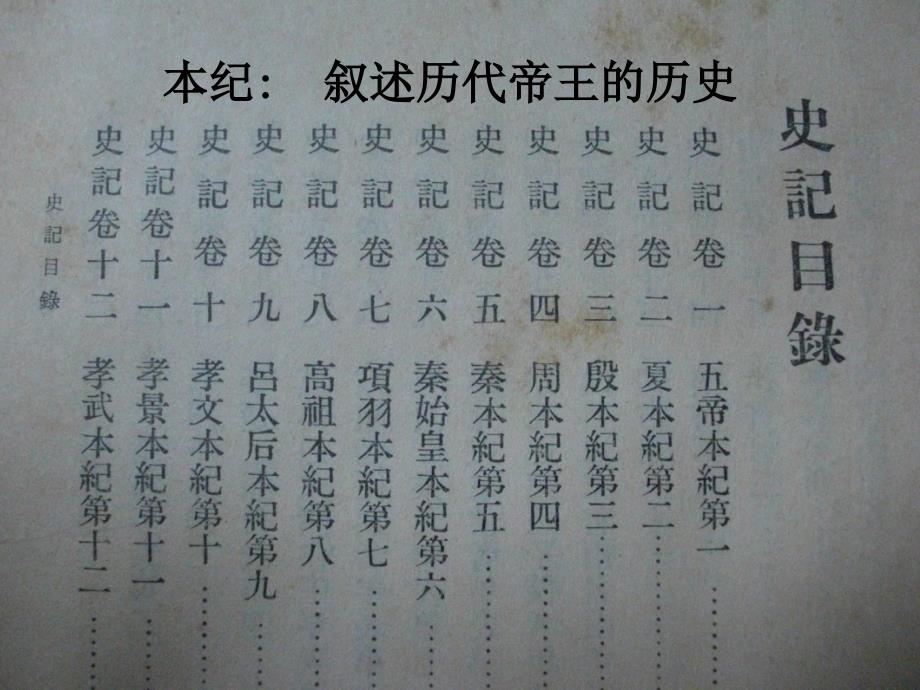 本纪： 叙述历代帝王的历史
史記目錄
史記卷一 五帝本紀第一
史記卷二 夏本紀第二
史記卷三 殷本紀第三
史記卷四 周本紀第四
史記卷五 秦本紀第五
史記卷六 秦始皇本紀第六
史記卷七 項羽本紀第七
史記卷八 高祖本紀第八
史記卷九 呂太后本紀第九
史記卷十 孝文本紀第十
史記卷十一 孝景本紀第十一
史記卷十二 孝武本紀第十二
史記目錄